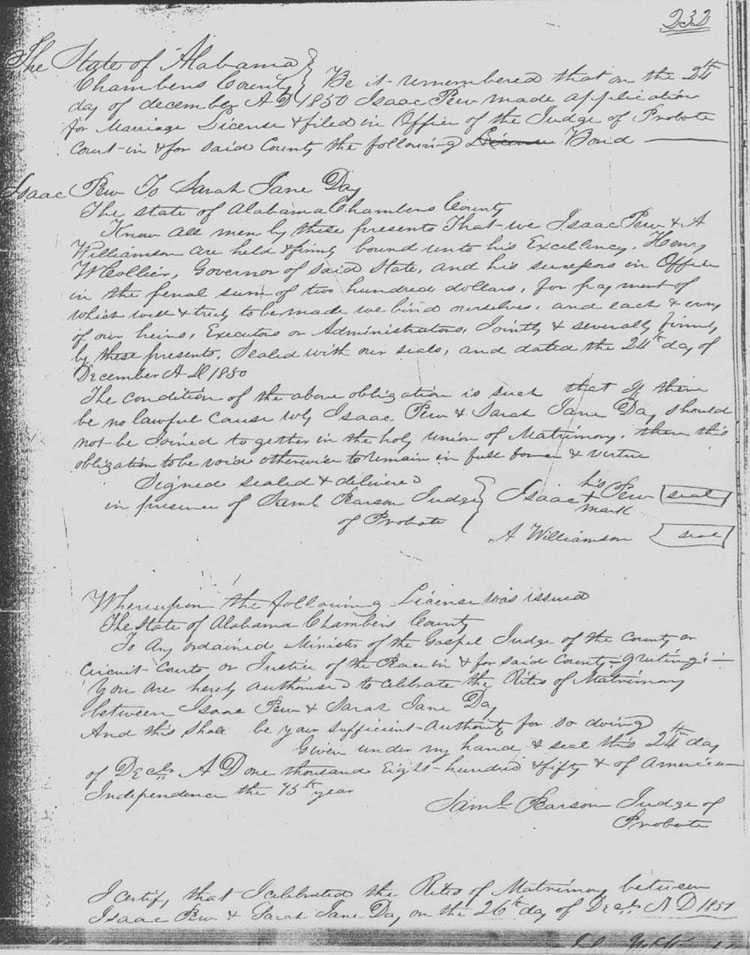 232
The State of Alabama
Chambers County } Be it remembered that on the 24
day of december A D 1850 Isaac Pew made application
for Marriage License & filed in Office of the Judge of Probate
Court in & for said County the following License Bond
Isaac Pew To Sarah Jane Day
The state of Alabama Chambers County
Know All men by these presents That we Isaac Pew & A
Williamson are held & firmly bound unto his Excellency, Henry
W Collier, Governor of said State, and his in Office
in the penal sum of two hundred dollars, for payment of
which well & truly to be made we bind ourselves, and each & every
of our heirs, Executors or Administrators, Jointly & severally firmly
by these presents, Sealed with our seals, and dated the 24th day of
December A D 1850
The condition of the above obligation is such that if there
be no lawful cause why Isaac Pew & Sarah Jane Day should
not be Joined to gether in the holy union of Matrimony, then this
obligation to be void otherwise to remain in full force & virtue
Signed sealed & delivered
in presence of Saml Pearson Judge
of Probate
Isaac his Pew seal
+
mark
A Williamson seal
Whereupon the following License was issued
The State of Alabama Chambers County
To Any ordained Minister of the Gospel Judge of the County or
Circuit Courts or Justice of the Peace in & for said County = Greeting :-
You are herely authorised to celebrate the Rites of Matrimony
between Isaac Pew & Sarah Jane Day
And this shall be your sufficient Authority for so doing
Given under my hand & seal this 24th day
of Decbr A D one thousand Eight hundred & fifty & of American
Independence the 75th year
Saml Pearson Judge of
Probate
I certify, that I celebrated the Rites of Matrimony between
Isaac Pew & Sarah Jane Day on the 26th day of Decbr A D 1850